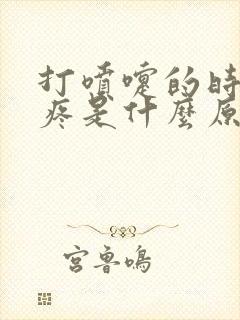 打噴嚏的時
疼是什麼原
宮魯鳴